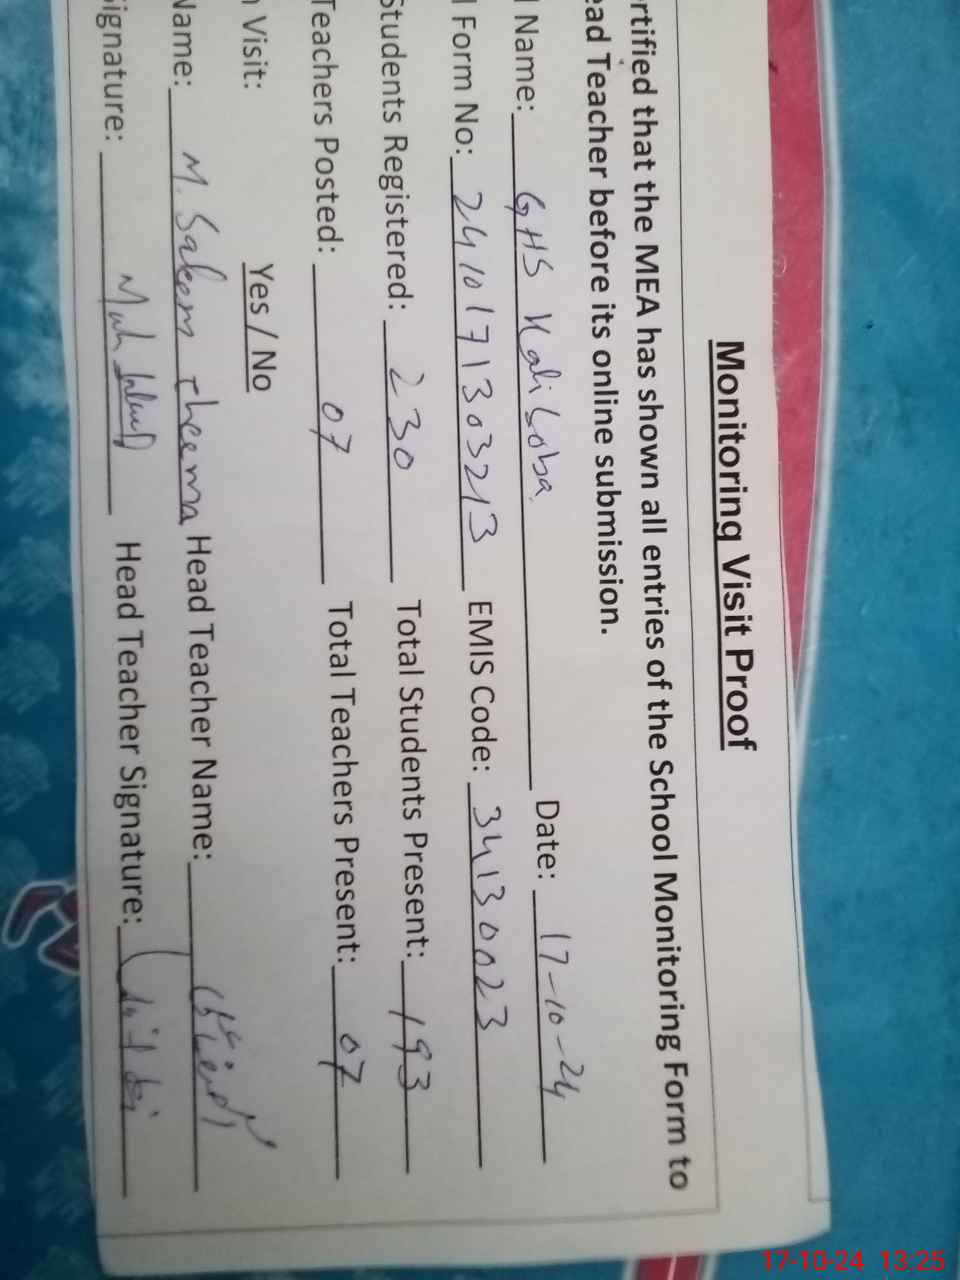 Monitoring Visit Proof
rtified that the MEA has shown all entries of the School Monitoring Form to
ead Teacher before its online submission.
l Name: GHS Kali Soba Date: 17-10-24
l Form No: 2410171303213 EMIS Code: 34130023
Students Registered: 230 Total Students Present: 193
Teachers Posted: 07 Total Teachers Present: 07
n Visit: Yes / No
Name: M. Saleem cheema Head Teacher Name:
Signature: Head Teacher Signature:
17-10-24 13:25